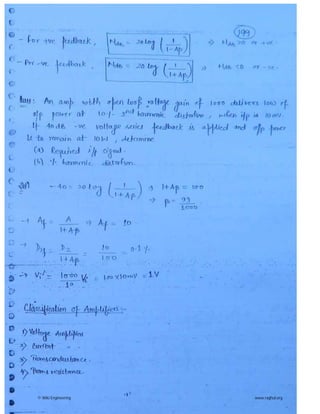 199
- For +ve feedback, N_dB = 20 log (1/(1-Aβ)) ⇒ N_dB > 0 or +ve.
- For -ve feedback, N_dB = 20 log (1/(1+Aβ)) ⇒ N_dB < 0 or -ve.
Ques: An amp with open loop voltage gain of 1000 delivers 10W of
o/p power at 10% 2nd harmonic distortion, when i/p is 10mV.
If 40dB -ve voltage series feedback is applied and o/p power
is to remain at 10W, determine
(a) Required i/p signal.
(b) % harmonic distortion.
Solⁿ - 40 = 20 log (1/(1+Aβ)) , 1+Aβ = 100
⇒ β = 99/1000
→ Af = A/(1+Aβ) ⇒ Af = 10
→ D2f = D2/(1+Aβ) = 10/100 = 0.1%
→ Vi' = 1000/10 Vi = 100×10mV = 1V
Classification of Amplifiers:-
1) Voltage Amplifier
2) Current " "
3) Transconductance
4) Trans resistance
www.raghul.org